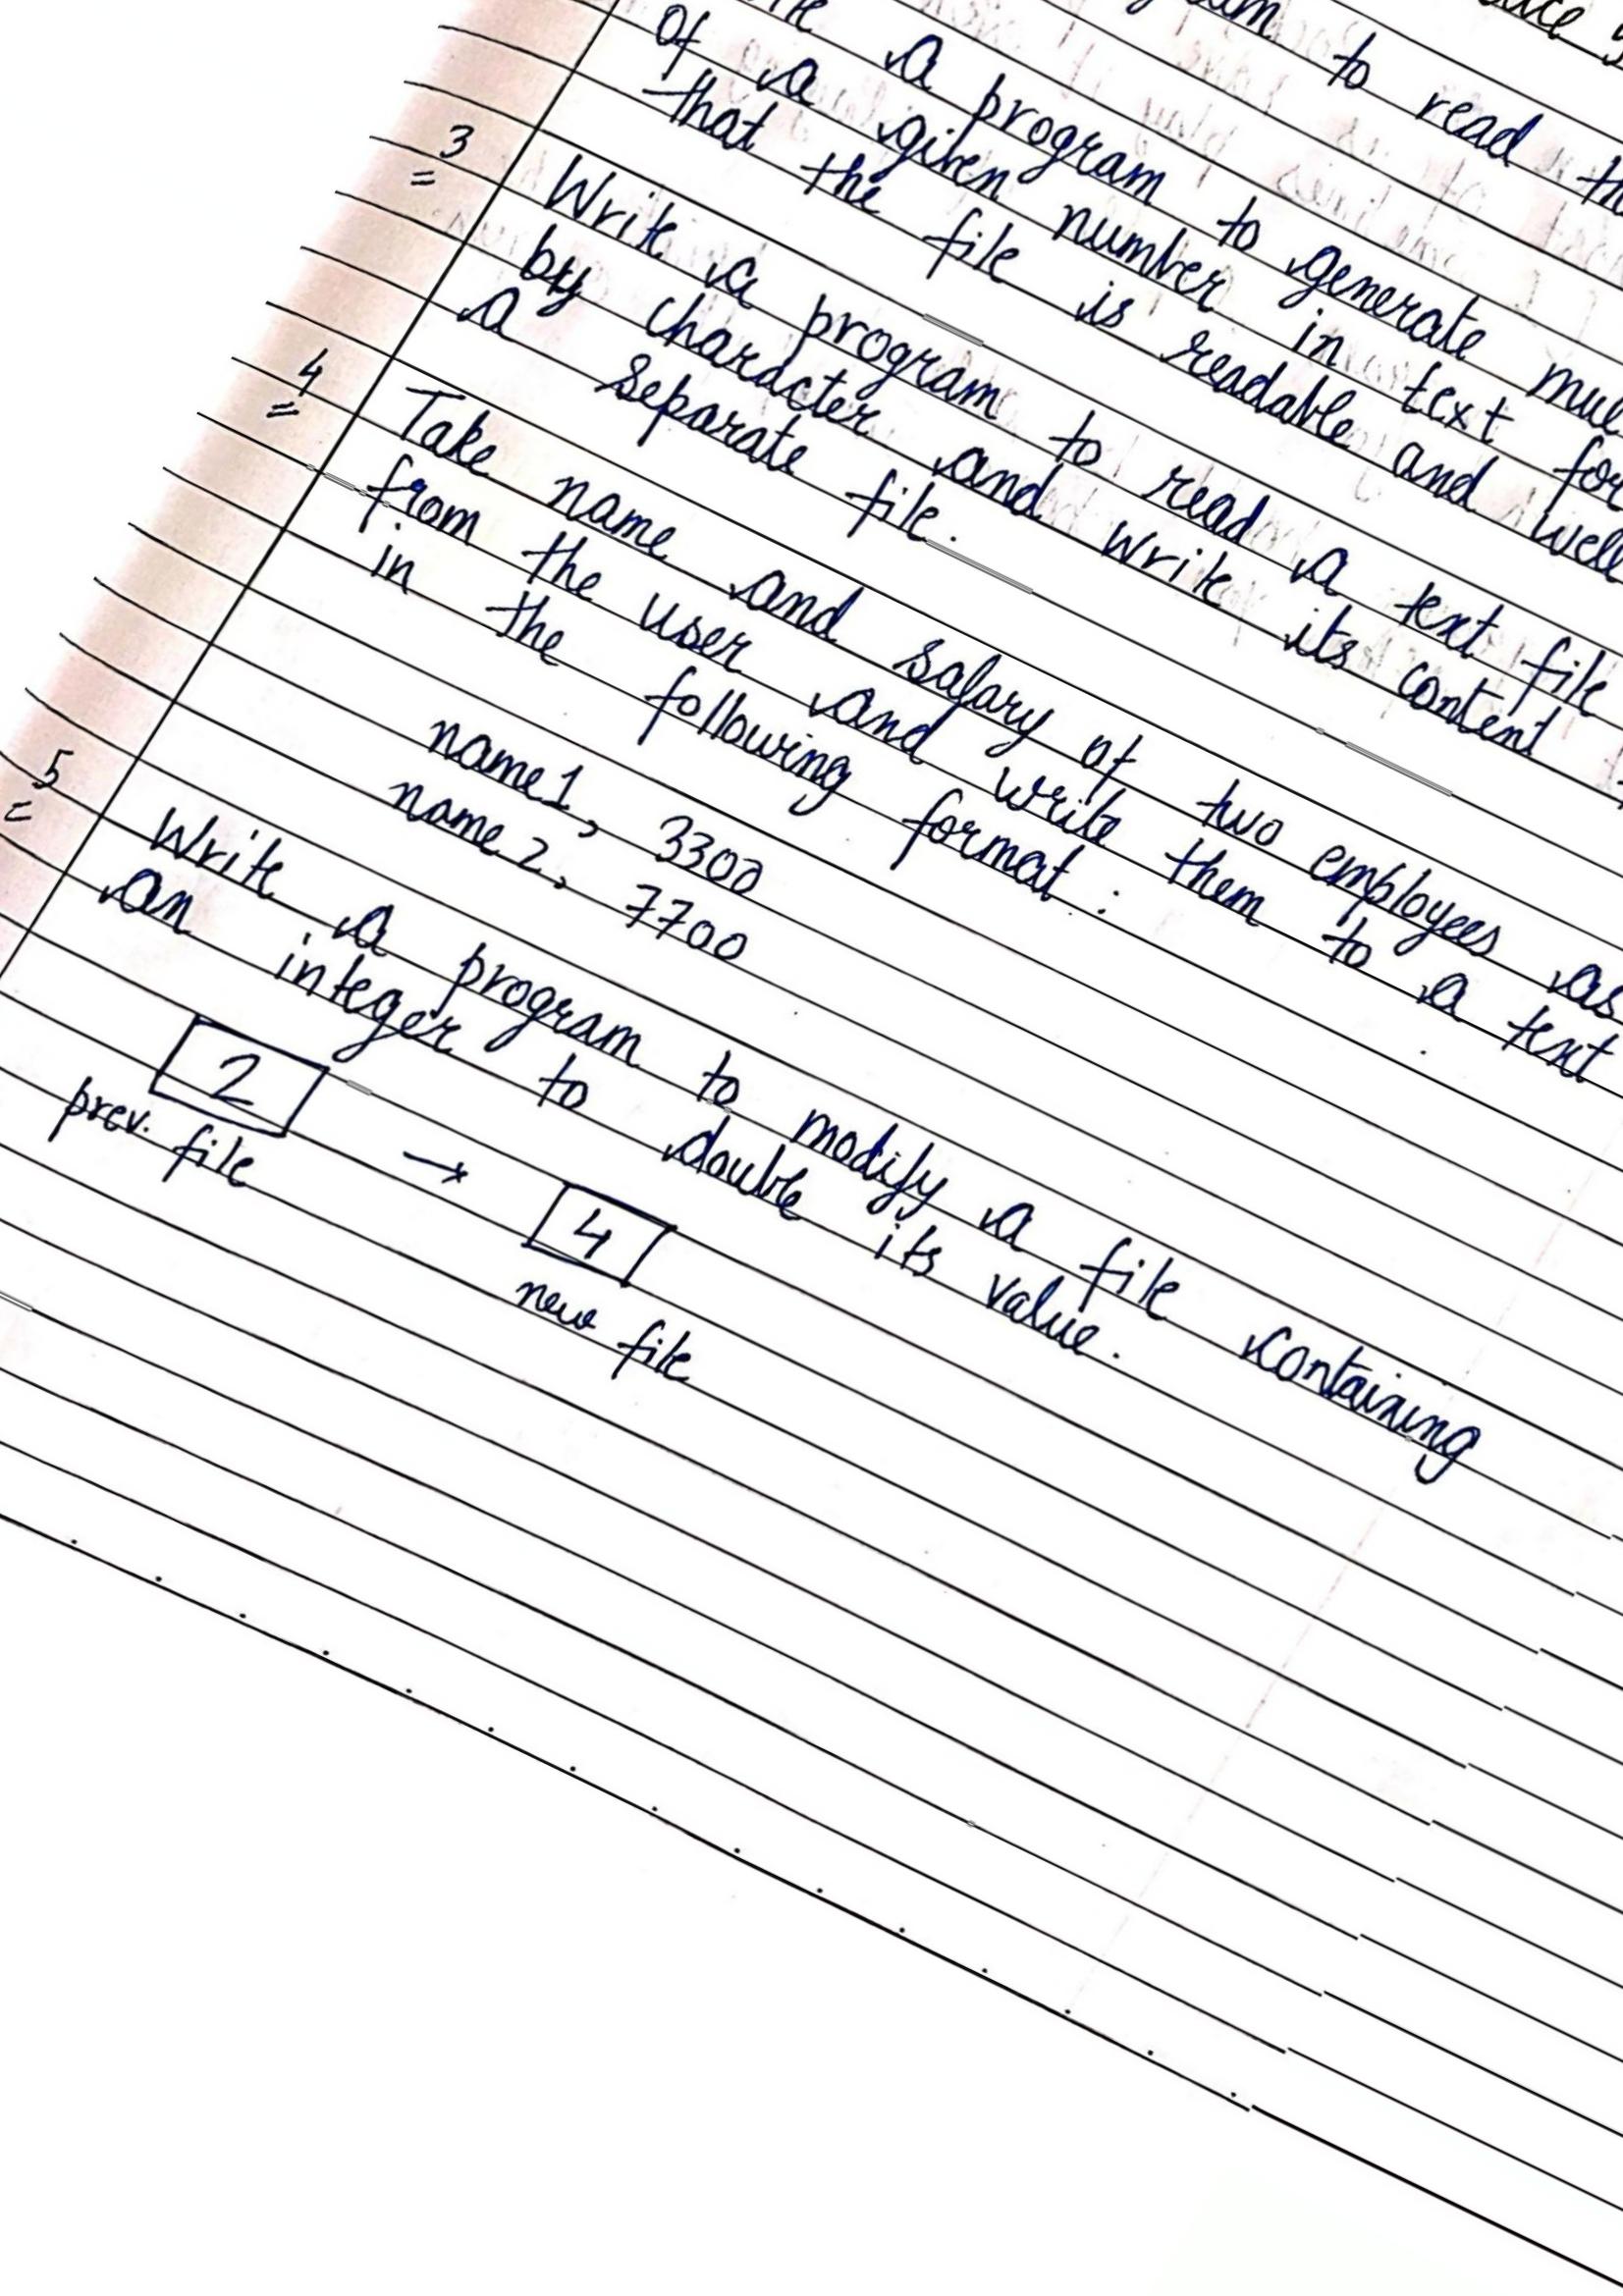 to read
a program to generate
of a given number in text
that the file is readable and
3
Write a program to read a text file
by character and write its content
a separate file.
4
Take name and salary of two employees as
from the user and write them to a text
in the following format :
name1, 3300
name2, 7700
5
Write a program to modify a file containing
an integer to double its value.
2 → 4
prev. file new file